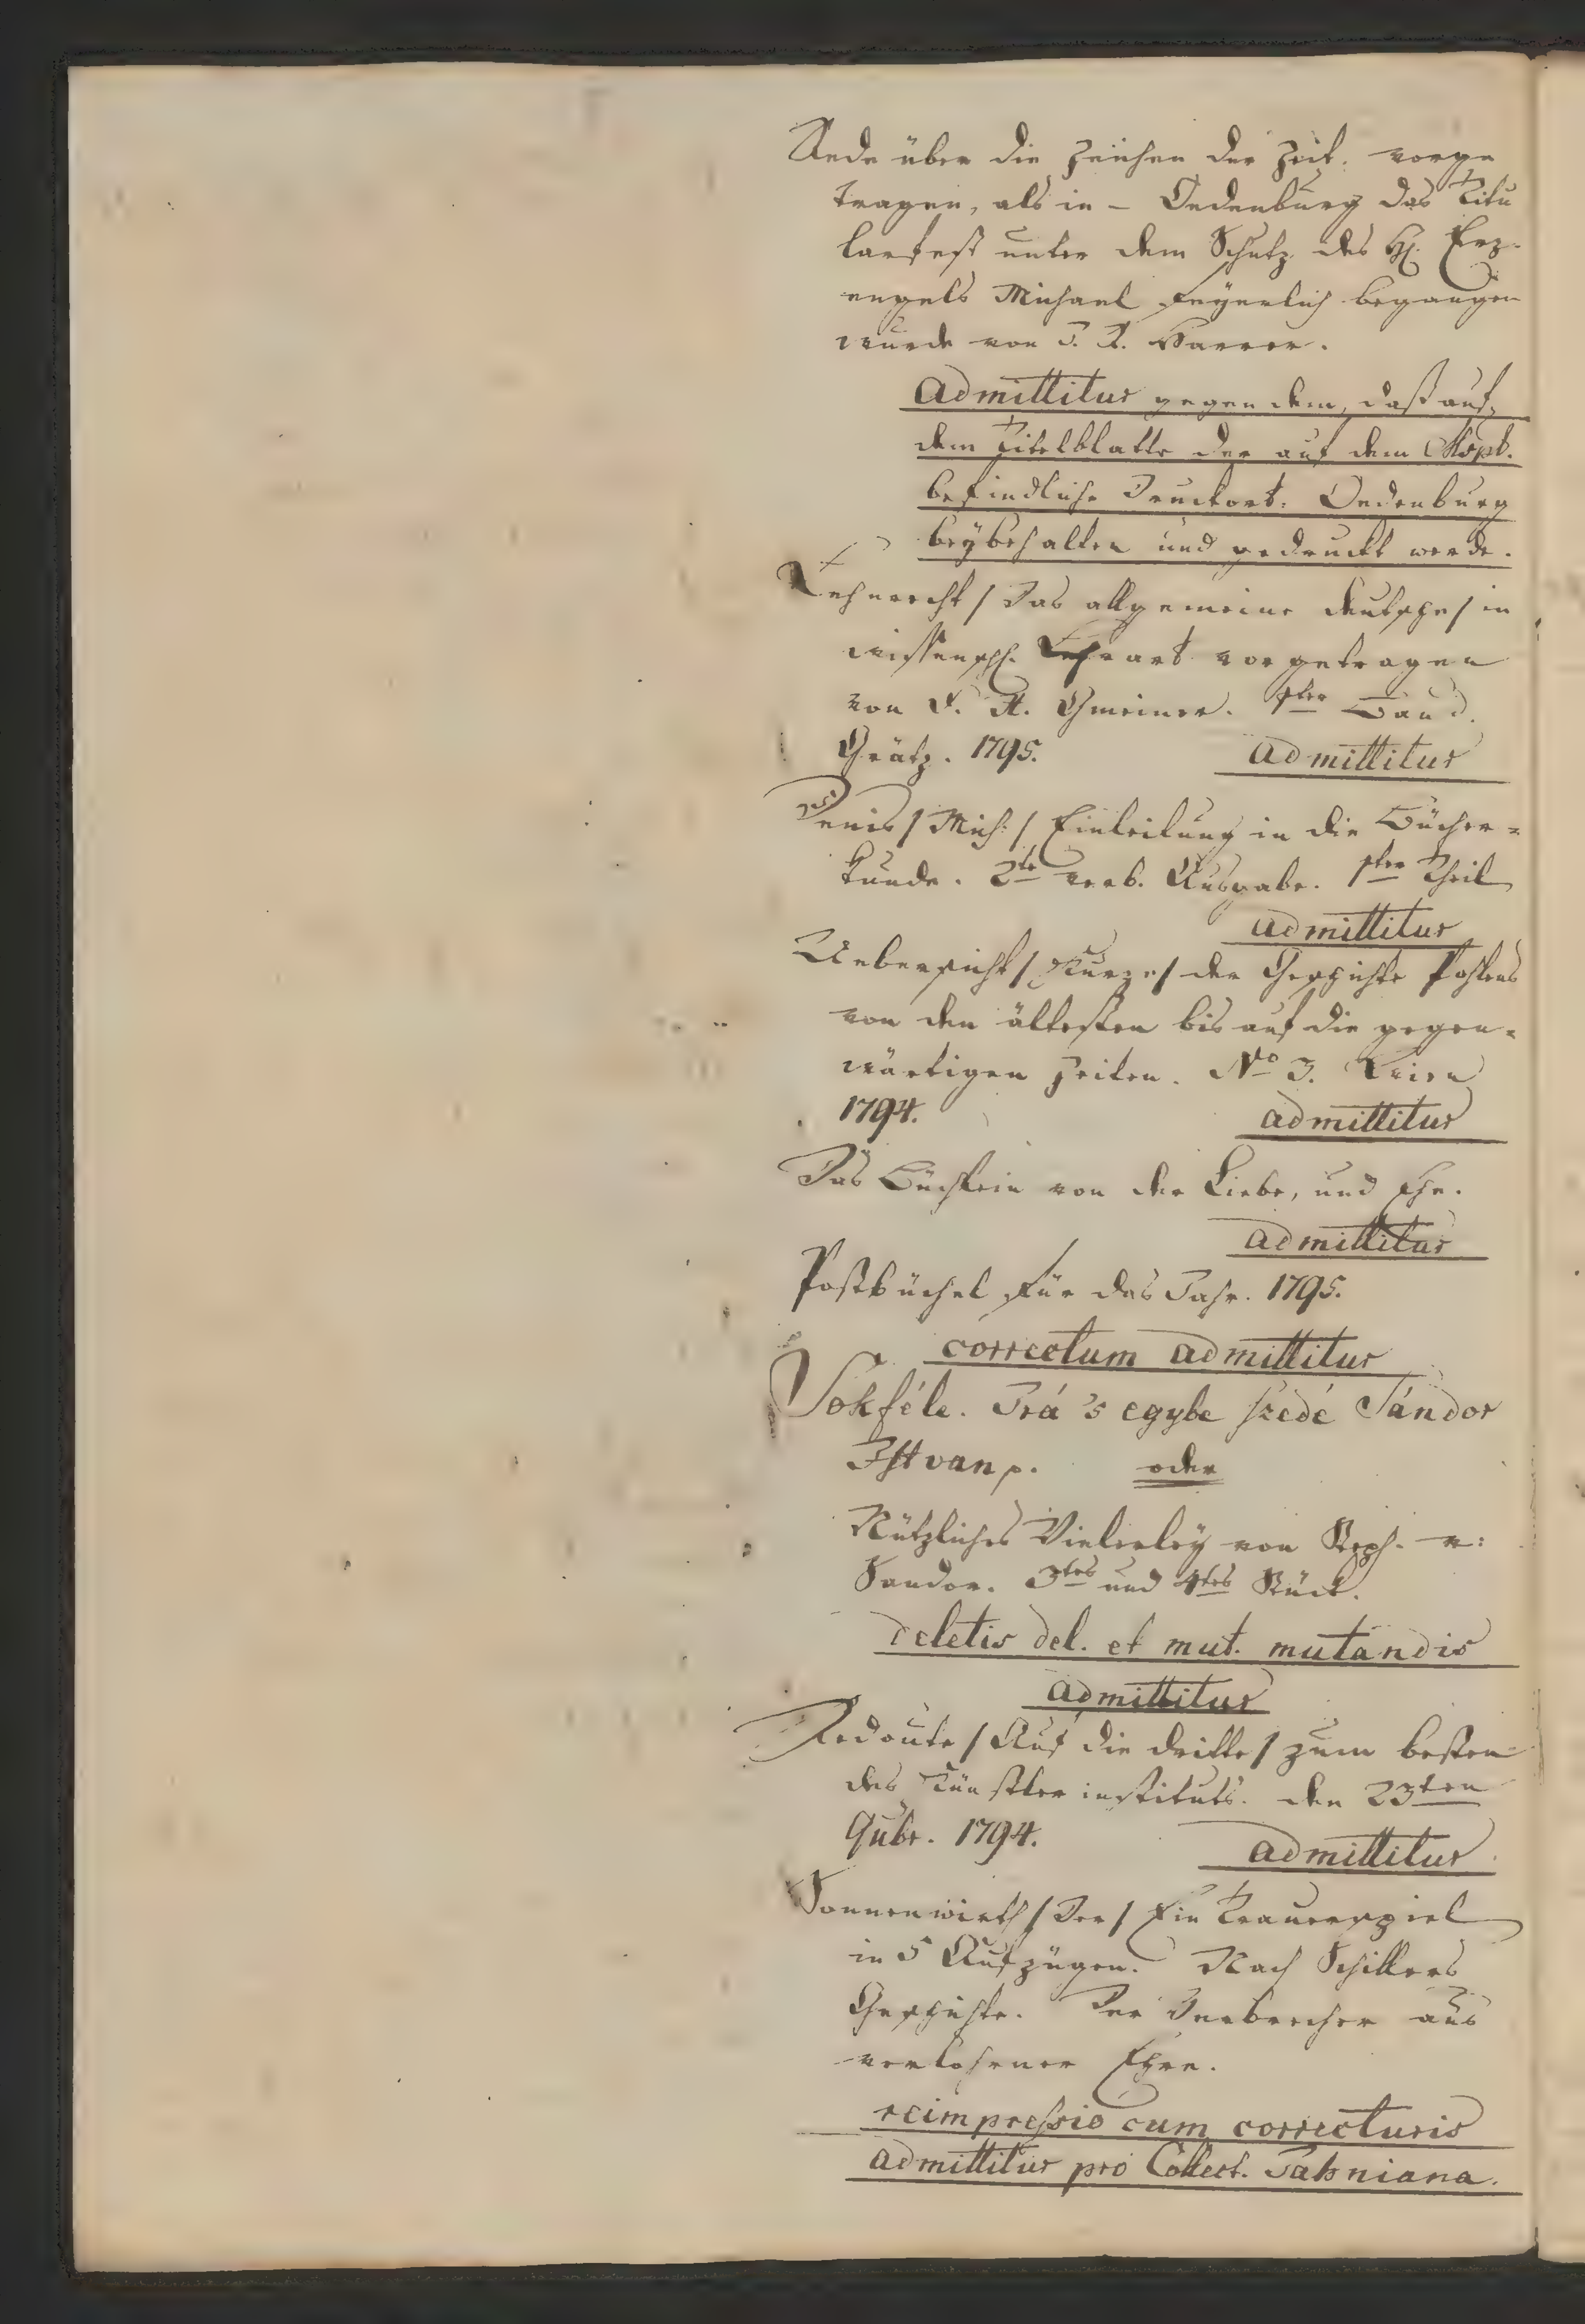 Rede über die Zeichen der Zeit. vorge
tragen, als in – Oedenburg das Titu
larfest unter dem Schutz des H. Erz-
engels Michael feyerlich begangen
wurde von J. A. Harrer.
Admittitur gegen dem, daß auf
dem Titelblatte der auf dem Mspt.
befindliche Druckort: Oedenburg
beybehalten und gedruckt werde.
Lehnrecht / Das allgemeine deutsche / in
wissensch. Lehrart vorgetragen
von F. X. Gmeiner. 1ter Band.
Grätz. 1795. admittitur
Denis / Mich: / Einleitung in die Bücher=
kunde. 2te verb. Ausgabe. 1ter Theil
admittitur
Uebersicht / Kurze / der Geschichte Pohlens
von den ältesten bis auf die gegen=
wärtigen Zeiten. No 3. Wien
1794. admittitur
Das Büchlein von der Liebe, und Ehe.
admittitur
Postbüchel für das Jahr. 1795.
correctum admittitur
Sokféle. Irá 's egybe szedé Sándor
Istvan p. oder
Nützliches Vielerley von Steph. v:
Sandor. 3tes und 4tes Stück.
deletis del. et mut. mutandis
admittitur
Redoute / Auf die dritte / zum besten
des Künstler instituts. den 23ten
9ubr. 1794. admittitur
Sonnenwirth / Der / Ein Trauerspiel
in 5 Aufzügen. Nach Schillers
Geschichte. Der Verbrecher aus
verlohrner Ehre.
reimpressio cum correcturis
admittitur pro Collect. Jahniana.